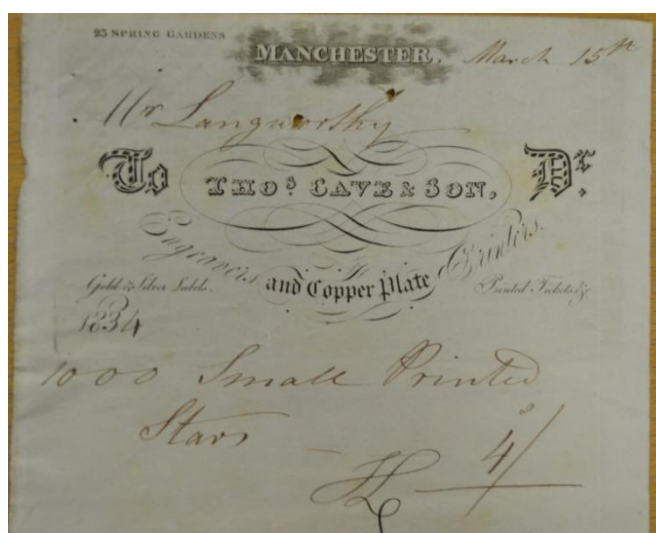 23 SPRING GARDENS
MANCHESTER. March 15th
Mr Langworthy
To THOs. CAVE & SON, Dr.
Engravers and Copper Plate Printers.
Gold & Silver Labels. Printed Tickets &c
1834
1000 Small Printed
Stars — 4/